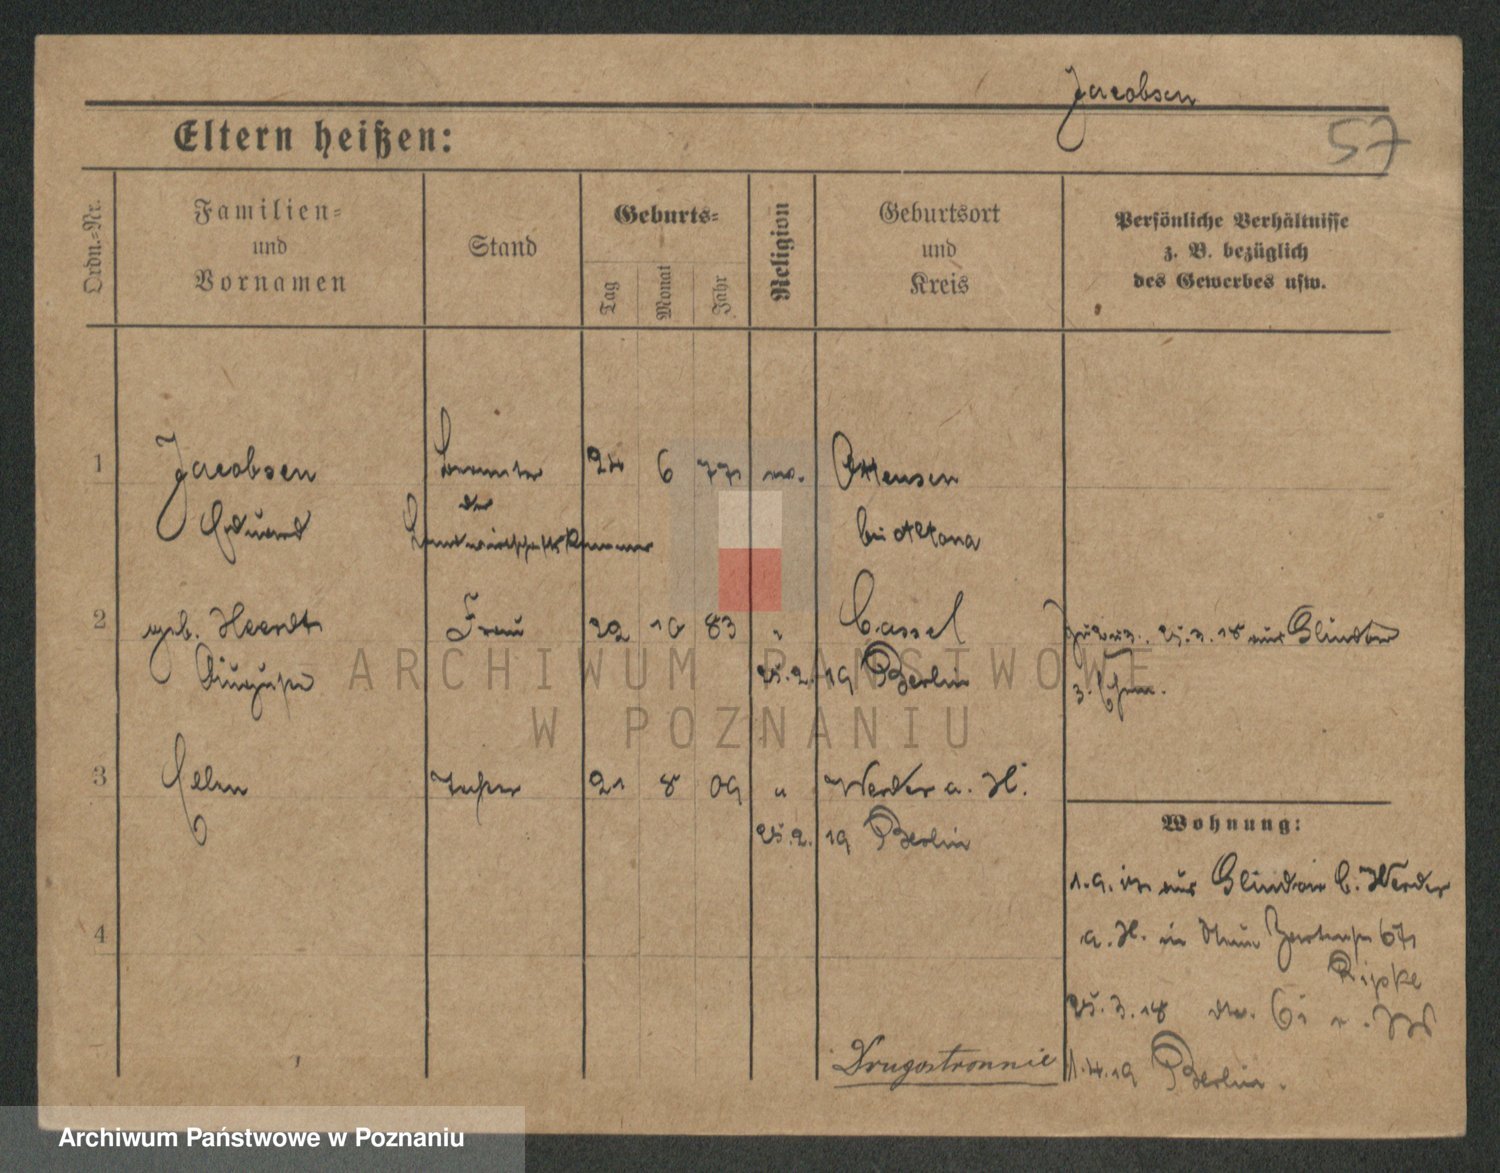 Jacobsen
57
Eltern heißen:
Ordn.=Nr.
Familien=
und
Vornamen
Stand
Geburts=
Tag
Monat
Jahr
Religion
Geburtsort
und
Kreis
Persönliche Verhältnisse
z. B. bezüglich
des Gewerbes usw.
1 Jacobsen Beamter 24 6 77 Ottensen
Eduard der Landwirtschaftskammer bei Altona
2 geb. Heerdt Frau 22 10 83 " Cassel 25.3.18 aus Glindow
25.2. 19 Berlin z. Ehem.
3 Ellen Tochter 21 8 09 " Werder a. H.
25.2. 19 Berlin
4
Wohnung:
1.9.17 aus Glindow b. Werder
a. H. in 67
Ripke
25.3.18
1.4.19 Berlin.
Drugostronnie
ARCHIWUM PAŃSTWOWE
W POZNANIU
Archiwum Państwowe w Poznaniu